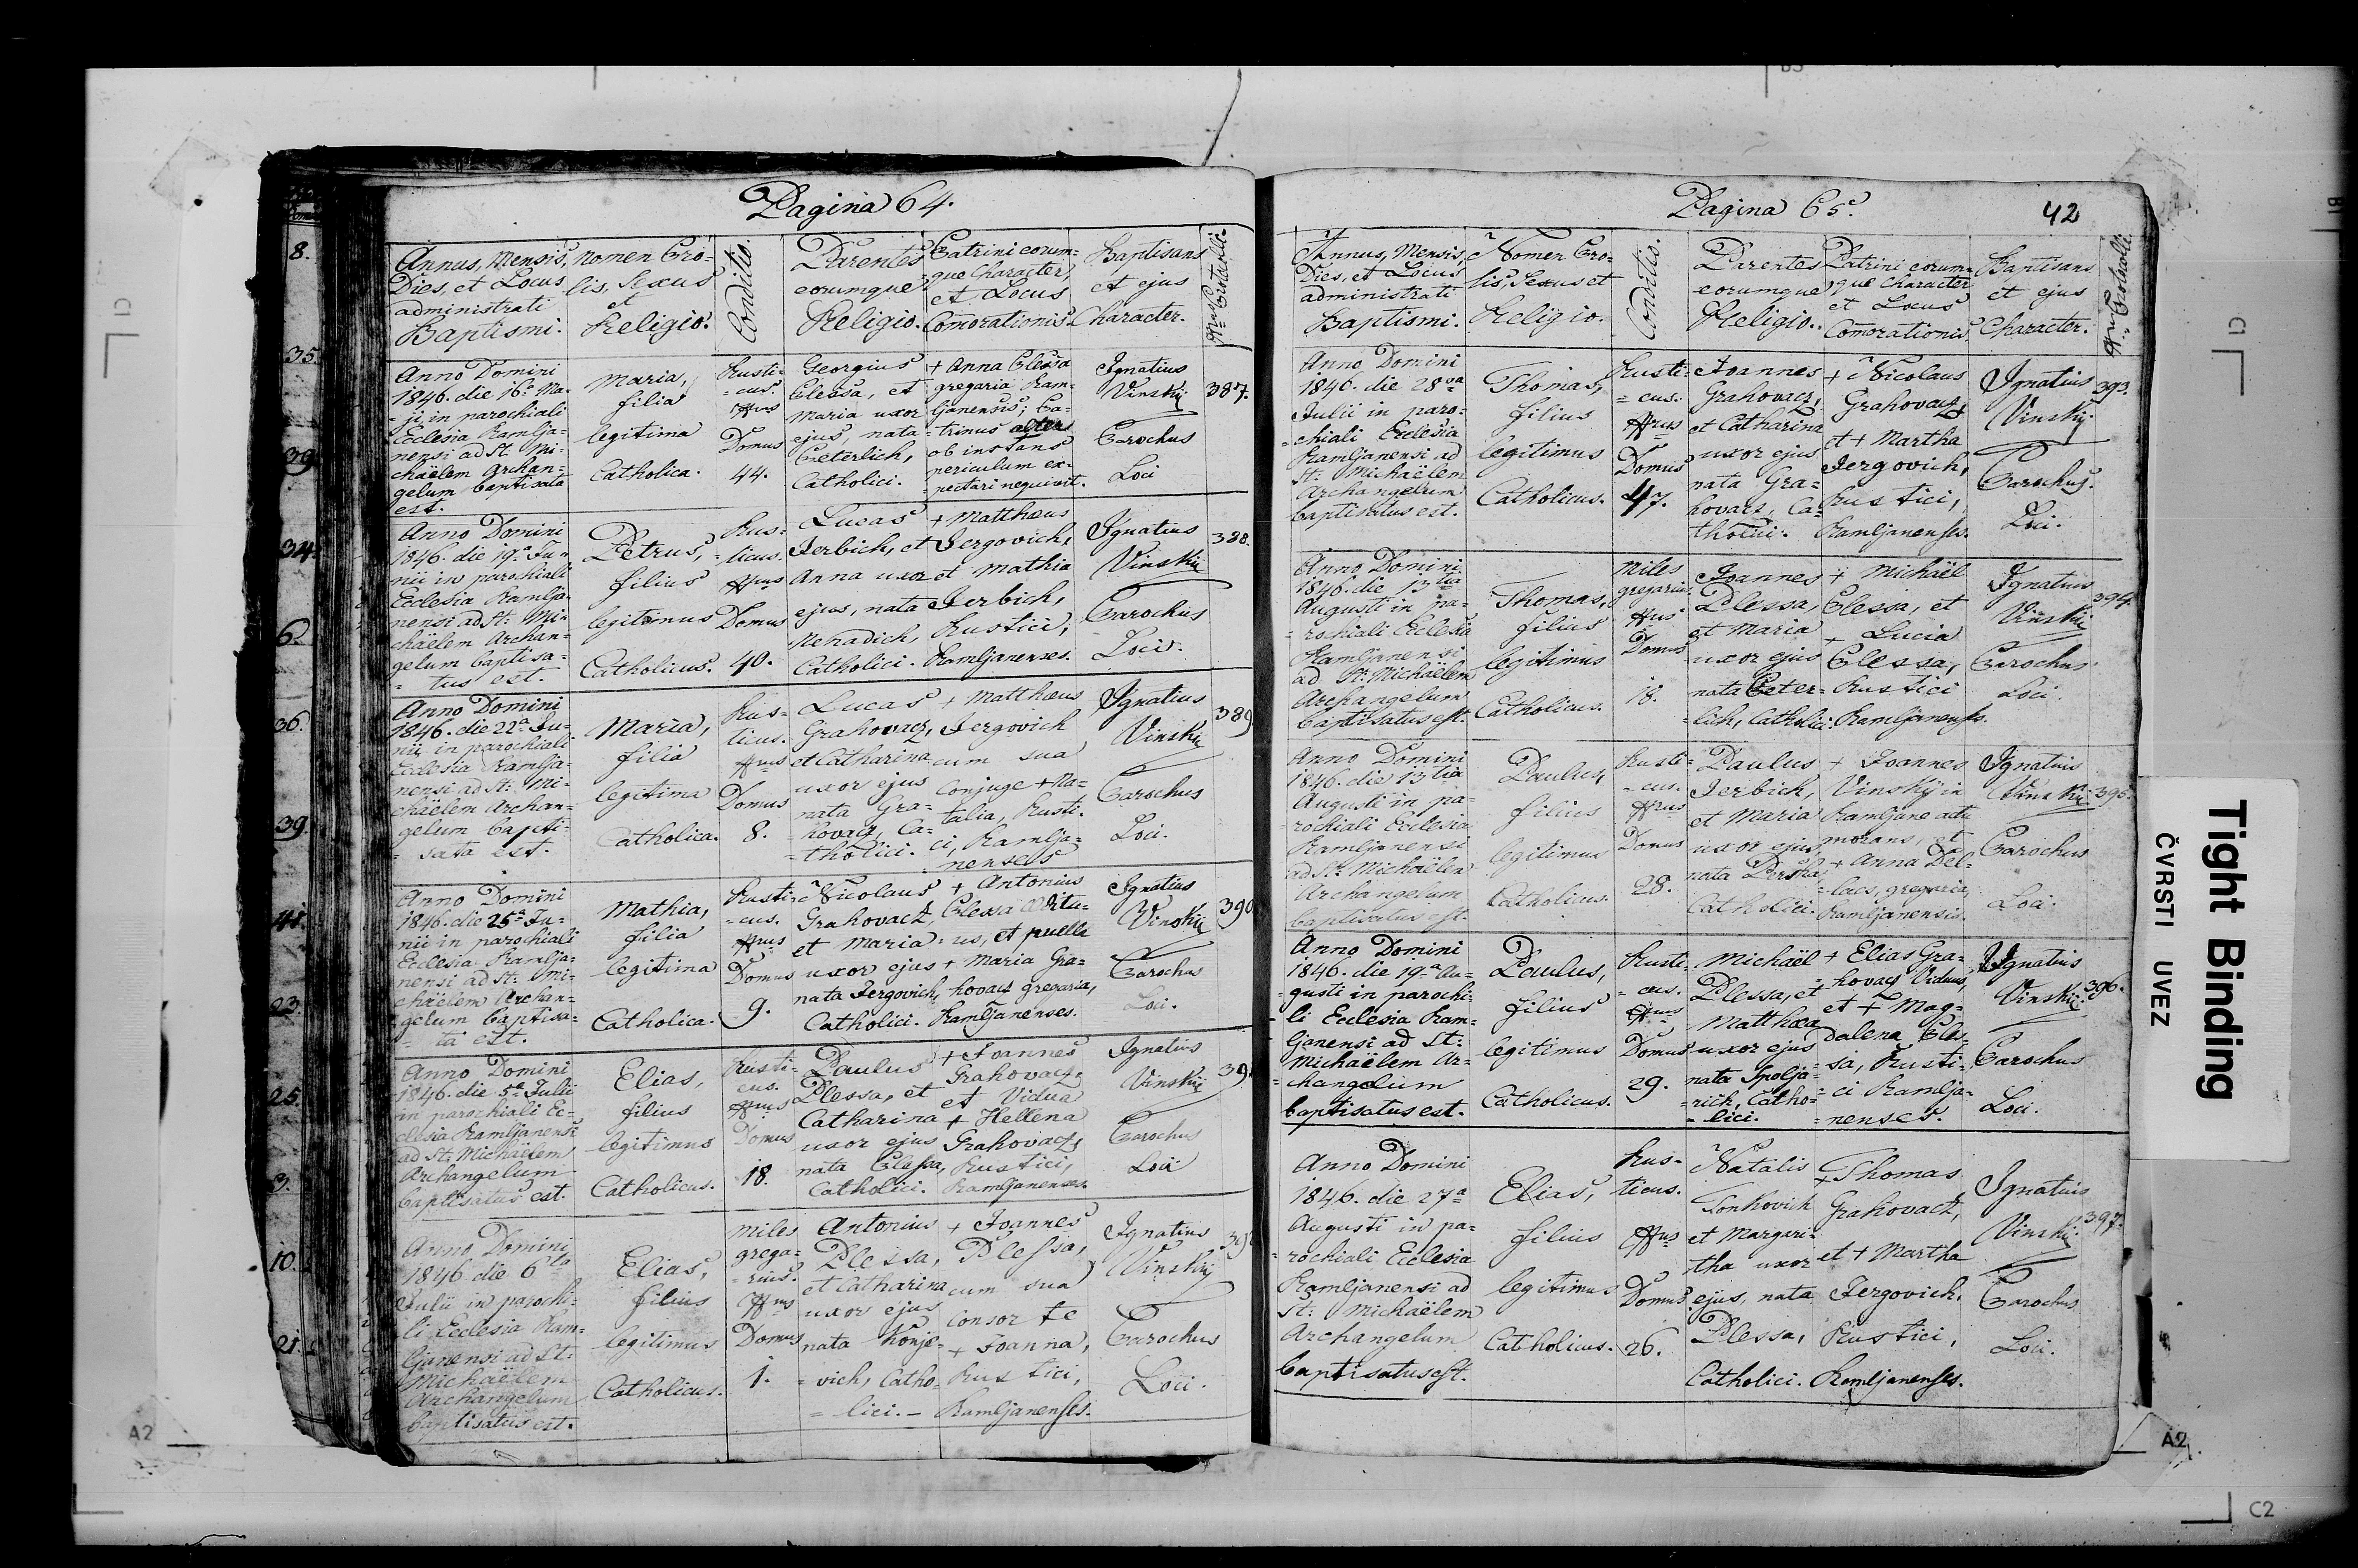 Pagina 64.
Annus, Mensis,
Dies, et Locus
administrati
Baptismi.
Nomen Pro-
lis, Sexus
et
Religio.
Conditio.
Parentes
eorumque
Religio.
Patrini eorum-
que Character
et Locus
Comorationis.
Baptisans
et ejus
Character.
Nrus Protocolli.
Anno Domini
1846. die 16a Ma-
ji in parochiali
Ecclesia Ramlja-
nensi ad St. Mi-
chaëlem Archan-
gelum baptisata
est.
Maria,
filia
legitima
Catholica.
Rusti-
= cus.
Nrus
Domus
44.
Georgius
Plessa, et
Maria uxor
ejus, nata
Peterlich,
Catholici.
+ Anna Plessa
gregaria Ram-
ljanensis; Pa-
= trinus alter
ob instans
periculum ex-
= pectari nequivit.
Ignatius
Vinskij
Parochus
Loci
387.
Anno Domini
1846. die 19a Ju-
nii in parochiali
Ecclesia Ramlja-
nensi ad St: Mi-
chäelem Archan-
gelum baptisa-
= tus est.
Petrus,
filius
legitimus
Catholicus.
Rus-
ticus.
Nrus
Domus
40.
Lucas
Jerbich, et
Anna uxor
ejus, nata
Nenadich,
Catholici.
+ Matthæus
Jergovich,
et Mathia
Jerbich,
Rustici,
Ramljanenses.
Ignatius
Vinskij
Parochus
Loci.
388.
Anno Domini
1846. die 22a Ju-
nii in parochiali
Ecclesia Ramlja-
nensi ad St: Mi-
chäelem Archan-
gelum bapti-
= sata est.
Maria,
filia
legitima
Catholica.
Rus-
ticus.
Nrus
Domus
8.
Lucas
Grahovacz,
et Catharina
uxor ejus
nata Gra-
= hovacz, Ca-
= tholici.
+ Matthæus
Jergovich
cum sua
Conjuge + Na-
talia, Rusti-
ci, Ramlja-
= nenses
Ignatius
Vinskij
Parochus
Loci.
389
Anno Domini
1846. die 25a Ju-
nii in parochiali
Ecclesia Ramlja-
nensi ad St: Mi-
chäelem Archan-
gelum baptisa-
= ta est.
Mathia,
filia
legitima
Catholica.
Rusti-
= cus.
Nrus
Domus
9.
Nicolaus
Grahovacz
et Maria
uxor ejus
nata Jergovich,
Catholici.
+ Antonius
Plessa
= us, et puella
+ Maria Gra-
hovacz gregaria,
Ramljanenses.
Ignatius
Vinskij
Parochus
Loci.
390
Anno Domini
1846. die 5a Julii
in parochiali Ec-
clesia Ramljanensi
ad St: Michäelem
Archangelum
baptisatus est.
Elias,
filius
legitimus
Catholicus.
Rusti-
cus.
Nrus
Domus
18.
Paulus
Plessa, et
Catharina
uxor ejus
nata Plessa,
Catholici.
+ Joannes
Grahovacz,
et Vidua
+ Hellena
Grahovacz,
Rustici,
Ramljanenses.
Ignatius
Vinskij
Parochus
Loci
Anno Domini
1846 die 6ta
Julii in parochi-
li Ecclesia Ram-
ljanensi ad St:
Michäelem
Archangelum
baptisatus est.
Elias,
filius
legitimus
Catholicus.
Miles
grega-
= rius.
Nrus
Domus
1.
Antonius
Plessa,
et Catharina
uxor ejus
nata Konje-
= vich, Catho-
= lici. –
+ Joannes
Plessa,
cum sua
Consor te
+ Joanna,
Rustici,
Ramljanenses.
Ignatius
Vinskij
Parochus
Loci.
Pagina 65.
42
Annus, Mensis,
Dies, et Locus
administrati
Baptismi.
Nomen Pro-
lis, Sexus et
Religio.
Conditio.
Parentes
eorumque
Religio.
Patrini eorum-
que Character
et Locus
Comorationis
Baptisans
et ejus
Character.
Nrus Protocolli.
Anno Domini
1846. die 28va
Julii in paro-
= chiali Ecclesia
Ramljanensi ad
St: Michaëlem
Archangelum
baptisatus est.
Thomas,
filius
legitimus
Catholicus.
Rusti-
= cus.
Nrus
Domus
47.
Joannes
Grahovacz,
et Catharina
uxor ejus
nata Gra-
hovacz, Ca-
tholici.
+ Nicolaus
Grahovacz,
et + Martha
Jergovich,
Rustici,
Ramljanenses.
Ignatius
Vinskij
Parochus.
Loci.
393.
Anno Domini
1846. die 13tia
Augusti in pa-
= rochiali Ecclesia
Ramljanensi
ad St: Michäelem
Archangelum
baptisatus est.
Thomas,
filius
legitimus
Catholicus.
Miles
gregarius.
Nrus
Domus
18.
Joannes
Plessa,
et Maria
uxor ejus
nata Peter-
= lich, Catholici.
+ Michäel
Plessa, et
+ Lucia
Plessa,
Rustici
Ramljanenses.
Ignatius
Vinskij
Parochus
Loci.
394.
Anno Domini
1846. die 13tia
Augusti in pa-
= rochiali Ecclesia
Ramljanensi
ad St: Michäelem
Archangelum
baptisatus est.
Paulus,
filius
legitimus
Catholicus.
Rusti-
= cus.
Nrus
Domus
28.
Paulus
Jerbich,
et Maria
uxor ejus
nata
Catholici.
+ Joannes
Vinskij in
Ramljane actu
morans, et
+ Anna Del-
= lacs, gregaria,
Ramljanensis.
Ignatius
Vinskij
Parochus
Loci.
395.
Anno Domini
1846. die 19a Au-
= gusti in parochi-
li Ecclesia Ram-
ljanensi ad St:
Michäelem Ar-
= changelum
baptisatus est.
Paulus,
filius
legitimus
Catholicus.
Rusti-
= cus.
Nrus
Domus
29.
Michäel
Plessa, et
Matthæa
uxor ejus
nata Spolja-
= rich, Catho-
= lici.
+ Elias Gra-
= hovacz Viduus,
et + Mag-
dalena Ples-
= sa, Rusti-
= ci Ramlja-
= nenses.
Ignatius
Vinskij
Parochus
Loci.
396.
Anno Domini
1846. die 27a
Augusti in pa-
= rochiali Ecclesia
Ramljanensi ad
St: Michäelem
Archangelum
baptisatus est.
Elias,
filius
legitimus
Catholicus.
Rus-
ticus.
Nrus
Domus
26.
Natalis
Tonkovich
et Margari-
tha uxor
ejus, nata
Plessa,
Catholici.
+ Thomas
Grahovacz,
et + Martha
Jergovich,
Rustici,
Ramljanenses.
Ignatius
Vinskij
Parochus
Loci.
397.
8.
35
39
34
6.
36
39.
41.
23.
25.
3.
10.
21.
Tight Binding
ČVRSTI UVEZ
C1
A2
B1
C1
A2
C2